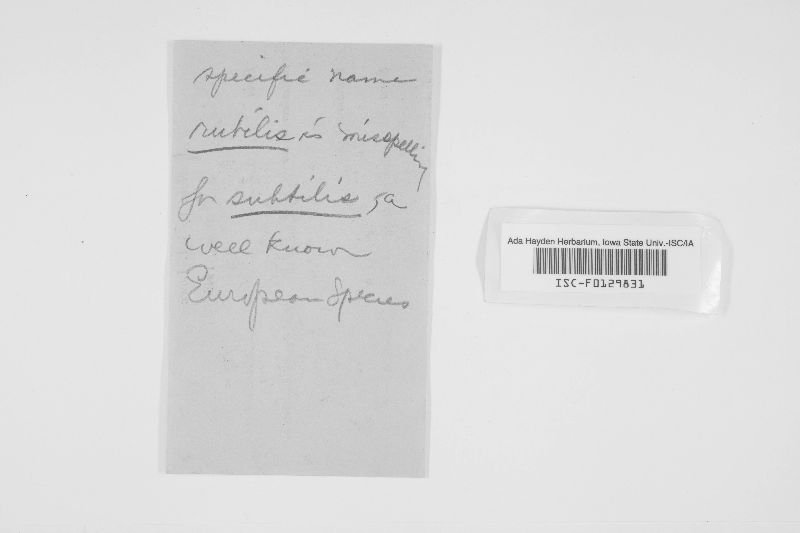 specific name
rubilis is misspelling
for subtilis, a
well known
European Species
Ada Hayden Herbarium, Iowa State Univ.-ISC/IA
ISC-F0129831